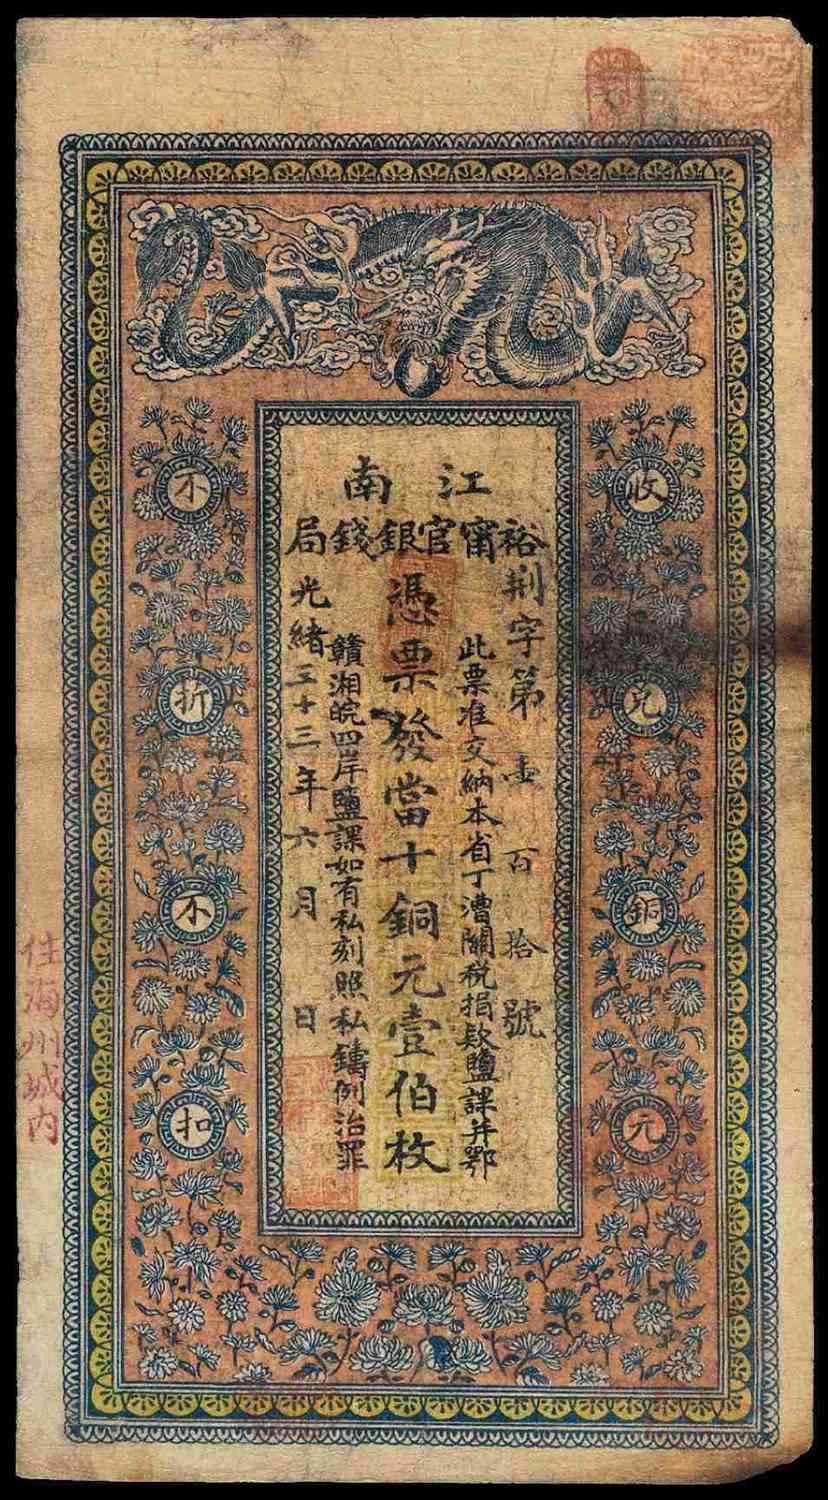 江南
裕甯官銀錢局
荆字第壹百拾號
此票准交納本省丁漕關稅捐款鹽課并鄂
憑票發當十銅元壹伯枚
贛湘皖四岸鹽課如有私刻照私鑄例治罪
光緒三十三年六月 日
收兌銅元
不折不扣
住海州城内